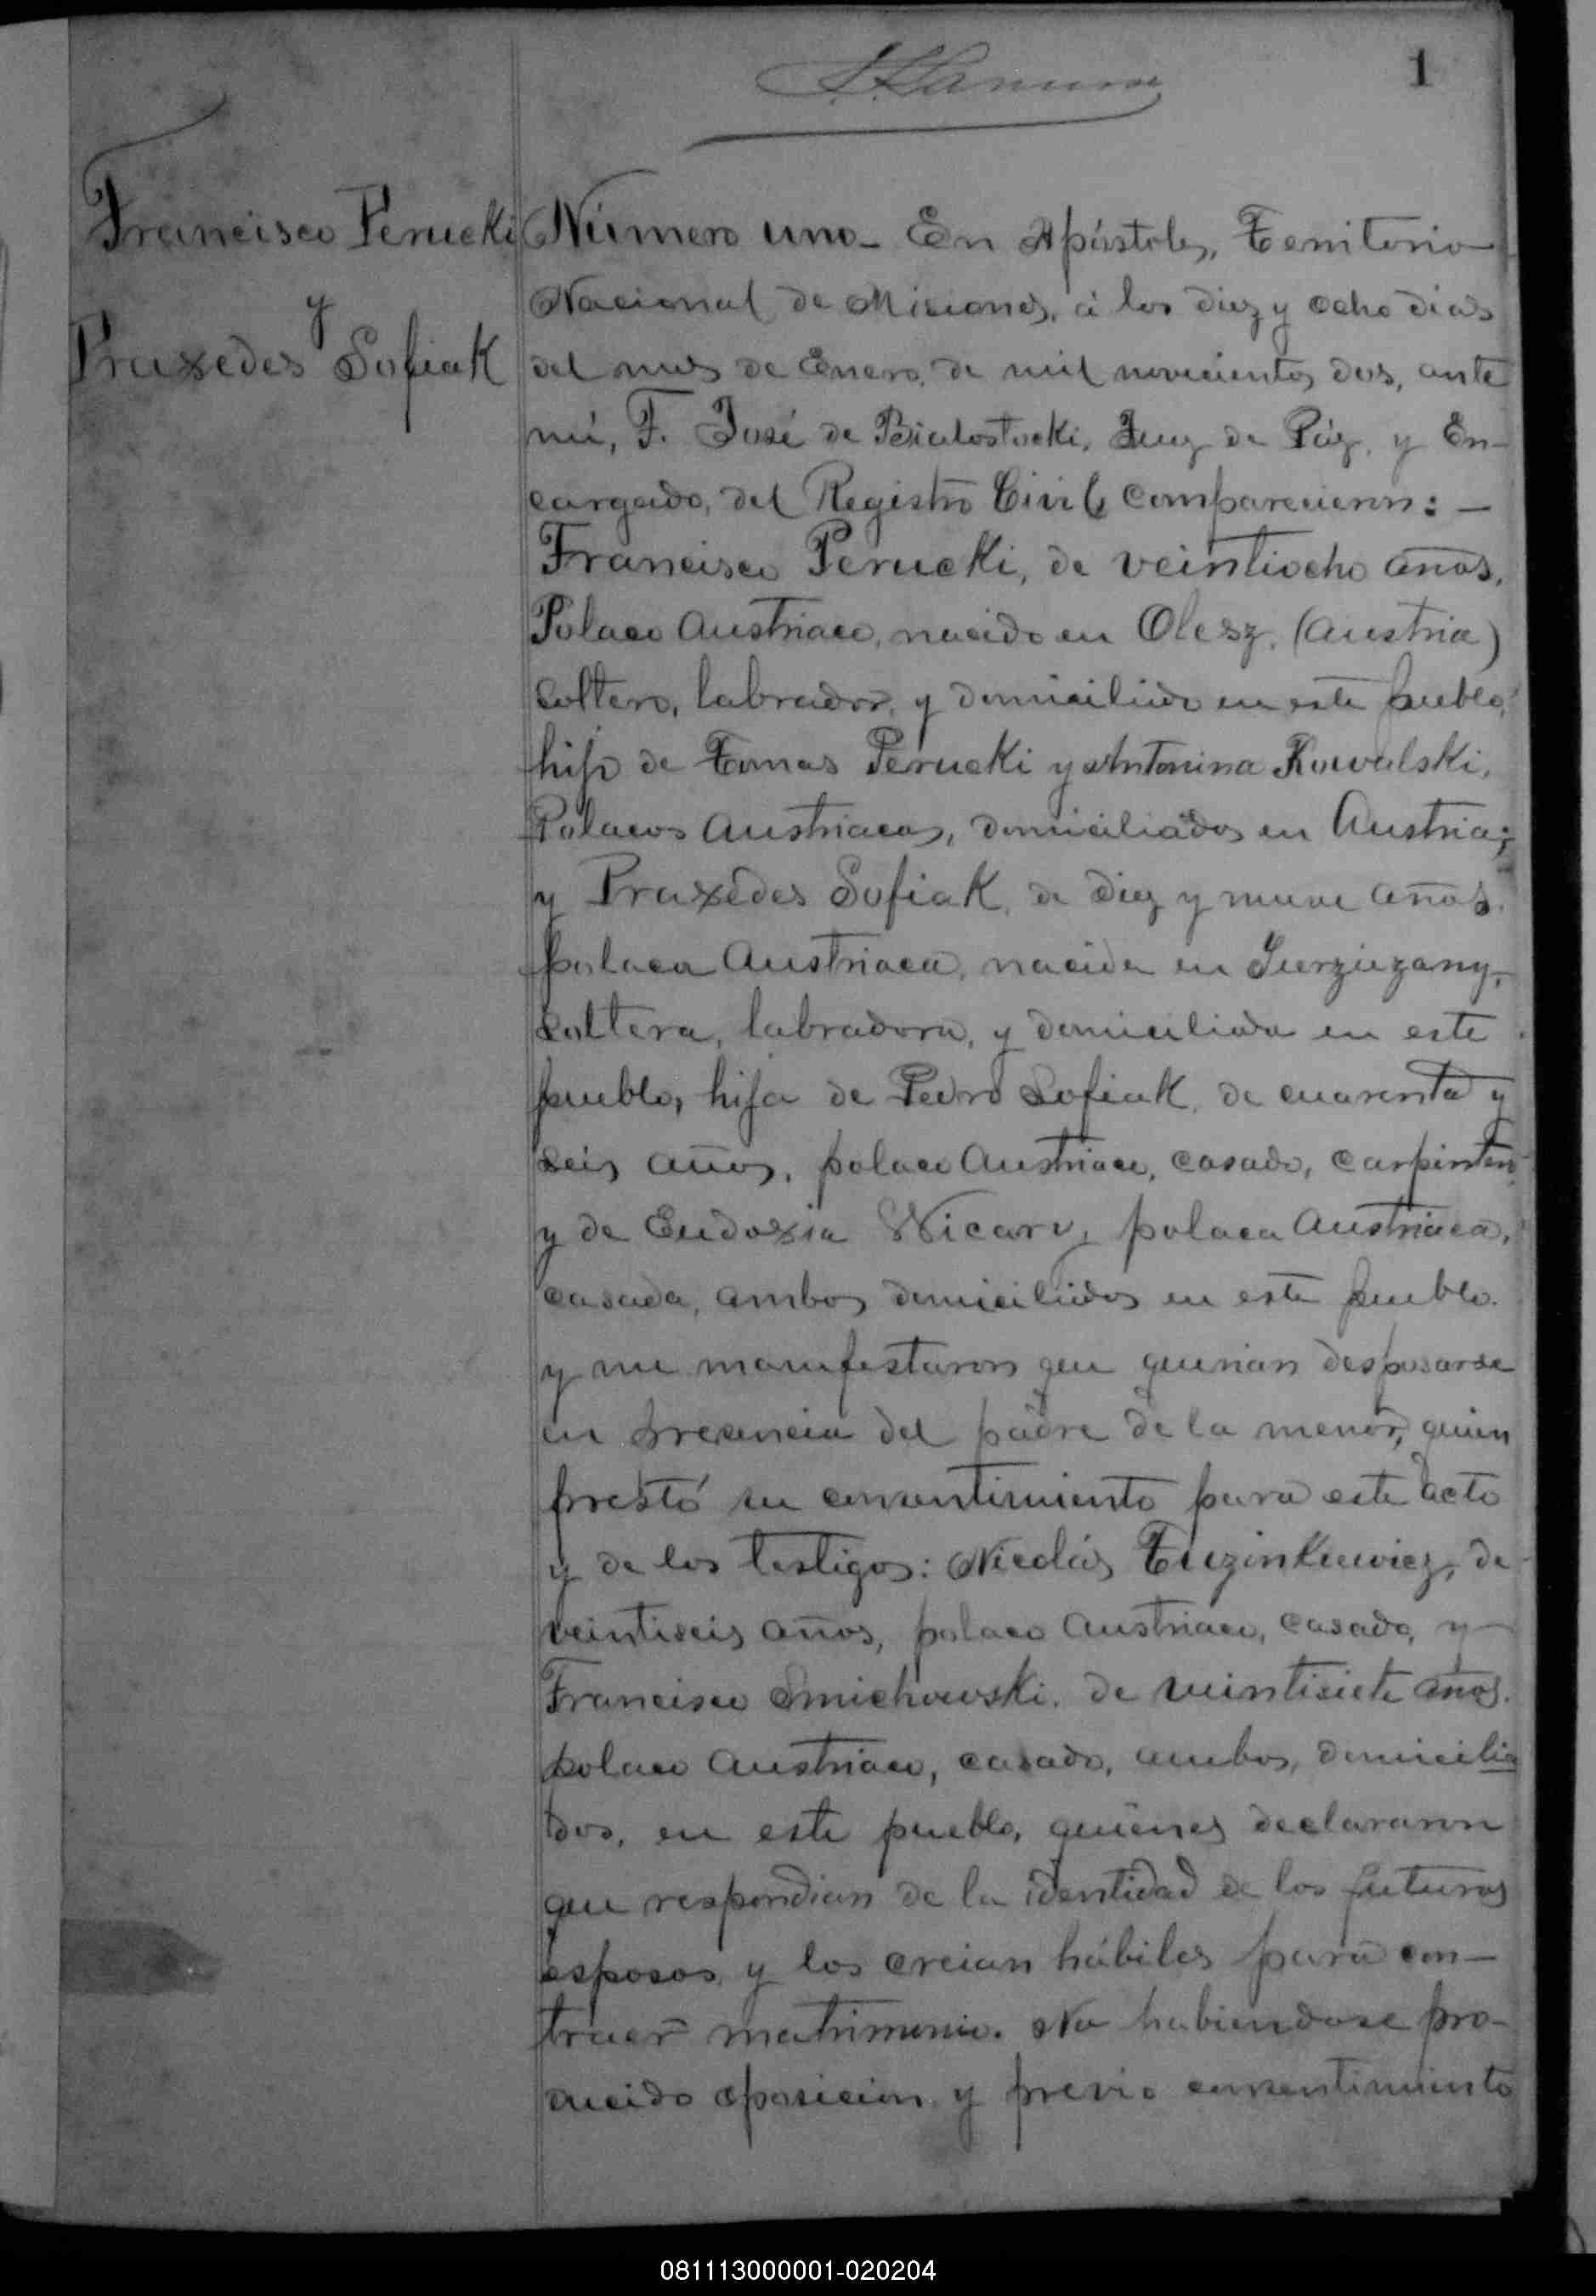 1
Francisco Perucki
y
Praxedes Sofiak
Número uno_ En Apóstoles, Territorio
Nacional de Misiones, á los diez y ocho dias
del mes de Enero, de mil novecientos dos, ante
mi, F. José de Bialostocki, Juez de Páz, y En-
cargado, del Registro Civil, comparecieron: —
Francisco Perucki, de veintiocho años,
Polaco Austriaco, nacido en Olesz, (Austria)
soltero, labrador, y domiciliado en este pueblo,
hijo de Tomas Perucki y Antonina Kowalski,
Polacos Austriacos, domiciliados en Austria;
y Praxédes Sofiak, de diez y nueve años,
polaca Austriaca, nacida en
soltera, labradora, y domiciliada en este
pueblo, hija de Pedro Sofiak, de cuarenta y
seis años, polaco Austriaco, casado, carpintero,
y de Eudoxia Wicary, polaca Austriaca,
casada, ambos domiciliados en este pueblo.
y me manifestaron que querian desposarse
en presencia del padre de la menor, quien
prestó su consentimiento para este acto
y de los testigos: Nicolás Tuzinkiewicz, de
veintiseis años, polaco Austriaco, casado, y
Francisco Smichowski. de veintisiete años.
polaco Austriaco, casado, ambos, domicilia
dos, en este pueblo, quiénes declararon
que respondian de la identidad de los futuros
esposos y los creian hábiles para con-
traer matrimonio. No habiendose pro-
ducido oposicion y previo consentimiento
081113000001-020204